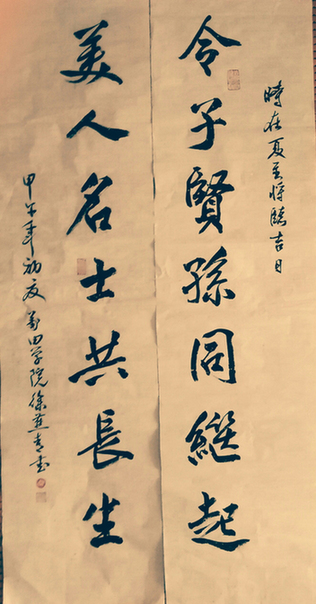 時在夏至將臨吉日
令子賢孫同繼起
美人名士共長生
甲午年初夏莆田学院徐